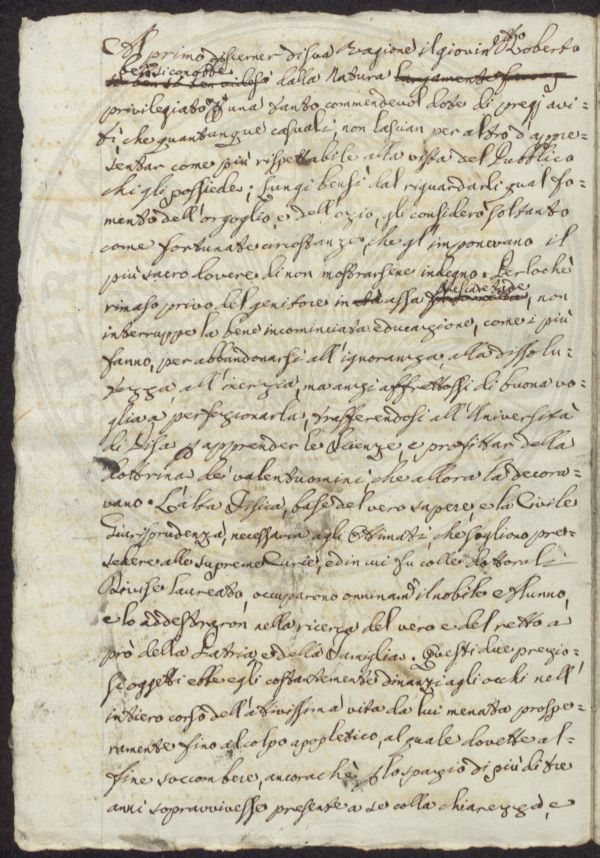 Al primo discerner di sua Ragione il giovin Roberto
ben si conobbe dalla Natura
privilegiato d'una tanto commendevol dote di pregj avi-
ti, che quantunque casuali, non lascian per altro d'appre-
sentar come più rispettabile alla vista del Pubblico
chi gli possiede; Lungi bensì dal riguardarli qual fo-
mento dell'orgoglio, e dell'ozio, gli considerò soltanto
come fortunate circostanze, che gl'imponevano il
più sacro dovere di non mostrarsene indegno. Perloché
rimaso privo del genitore in assa fresca età, non
interruppe la bene incominciata educazione, come i più
fanno, per abbandonarsi all'ignoranza, alla dissolu-
tezza, all'inerzia, ma anzi affrettossi di buona vo-
glia a perfezionarla, trasferendosi all'Università
di Pisa p apprender le Scienze, e profittar della
dottrina de' valentuomini, che allora la decora-
vano. L'alta Fisica, base del vero sapere, e la Civile
Giurisprudenza, necessaria agli Ottimati, che sogliono pre-
sedere alle supreme Curie, ed in cui fu colle dottorali
Divise laureato, occuparono onninam.e il nobile Alunno,
e lo addestraron nella ricerca del vero e del retto a
prò della Patria, e della Famiglia. Questi due prezio-
si oggetti ebbe egli costantemente dinanzi agli occhi nell'
intiero corso dell'attivissima vita da lui menata prospe-
ramente fino al colpo apopletico, al quale dovette al-
fine soccombere, ancorachè p lo spazio di più di tre
anni sopravvivesse presente a se colla chiarezza, e